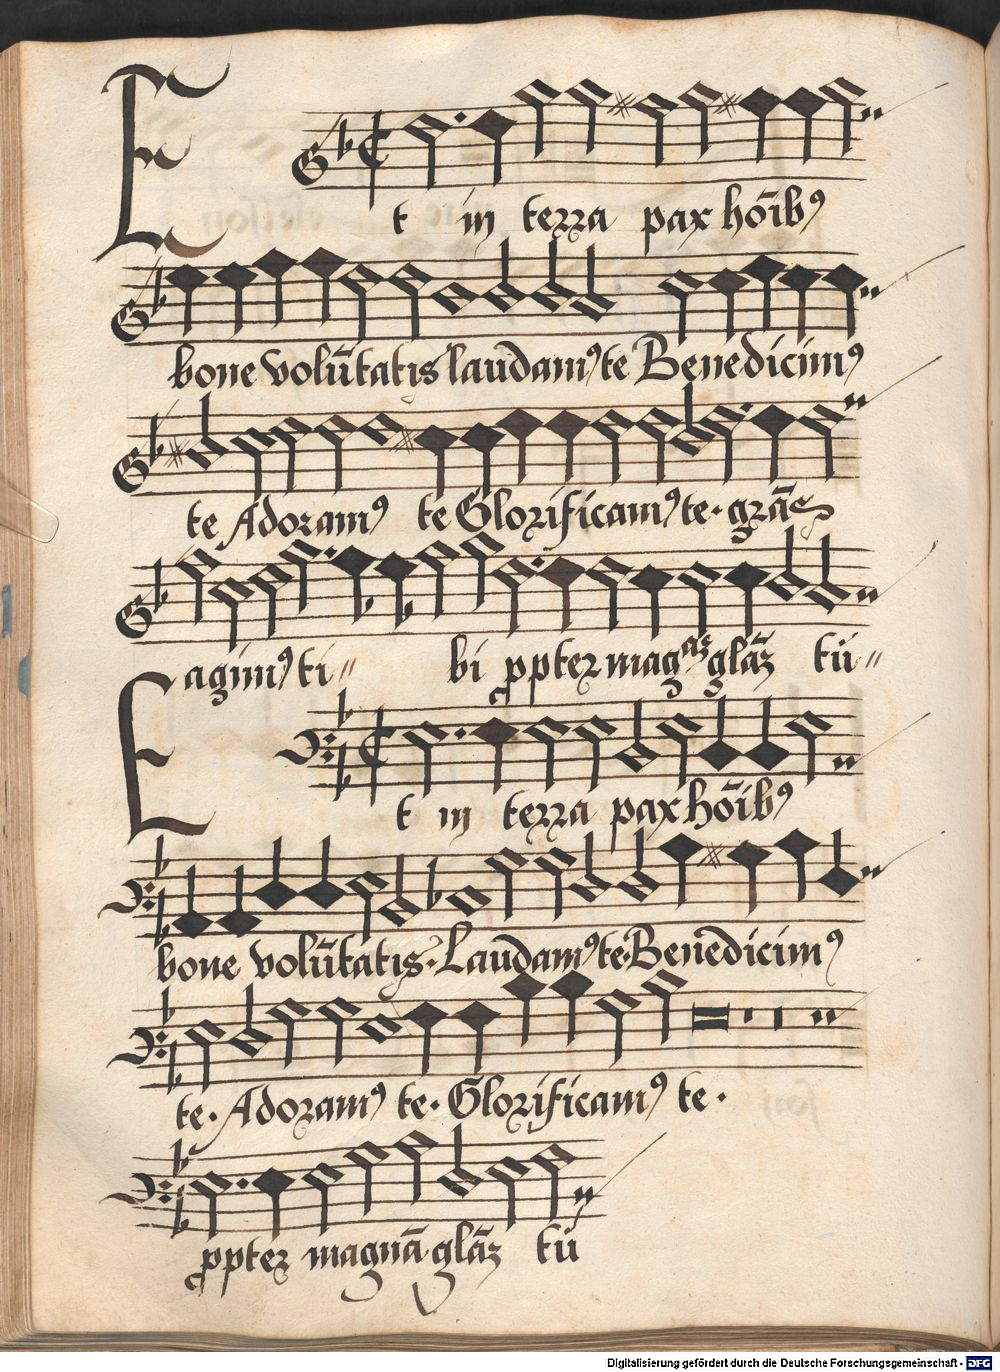 Et in terra pax hoībꝰ
bone volūtatis laudamꝰ te Benedicimꝰ
te Adoramꝰ te Glorificamꝰ te · grās
agimꝰ ti〃 bi ꝓpter mag glāz tū〃
Et in terra pax hoībꝰ
bone volūtatis · Laudamꝰ te · Benedicimꝰ
te · Adoramꝰ te · Glorificamꝰ te ·
ꝓpter magnā glāz tū
Digitalisierung gefördert durch die Deutsche Forschungsgemeinschaft - DFG